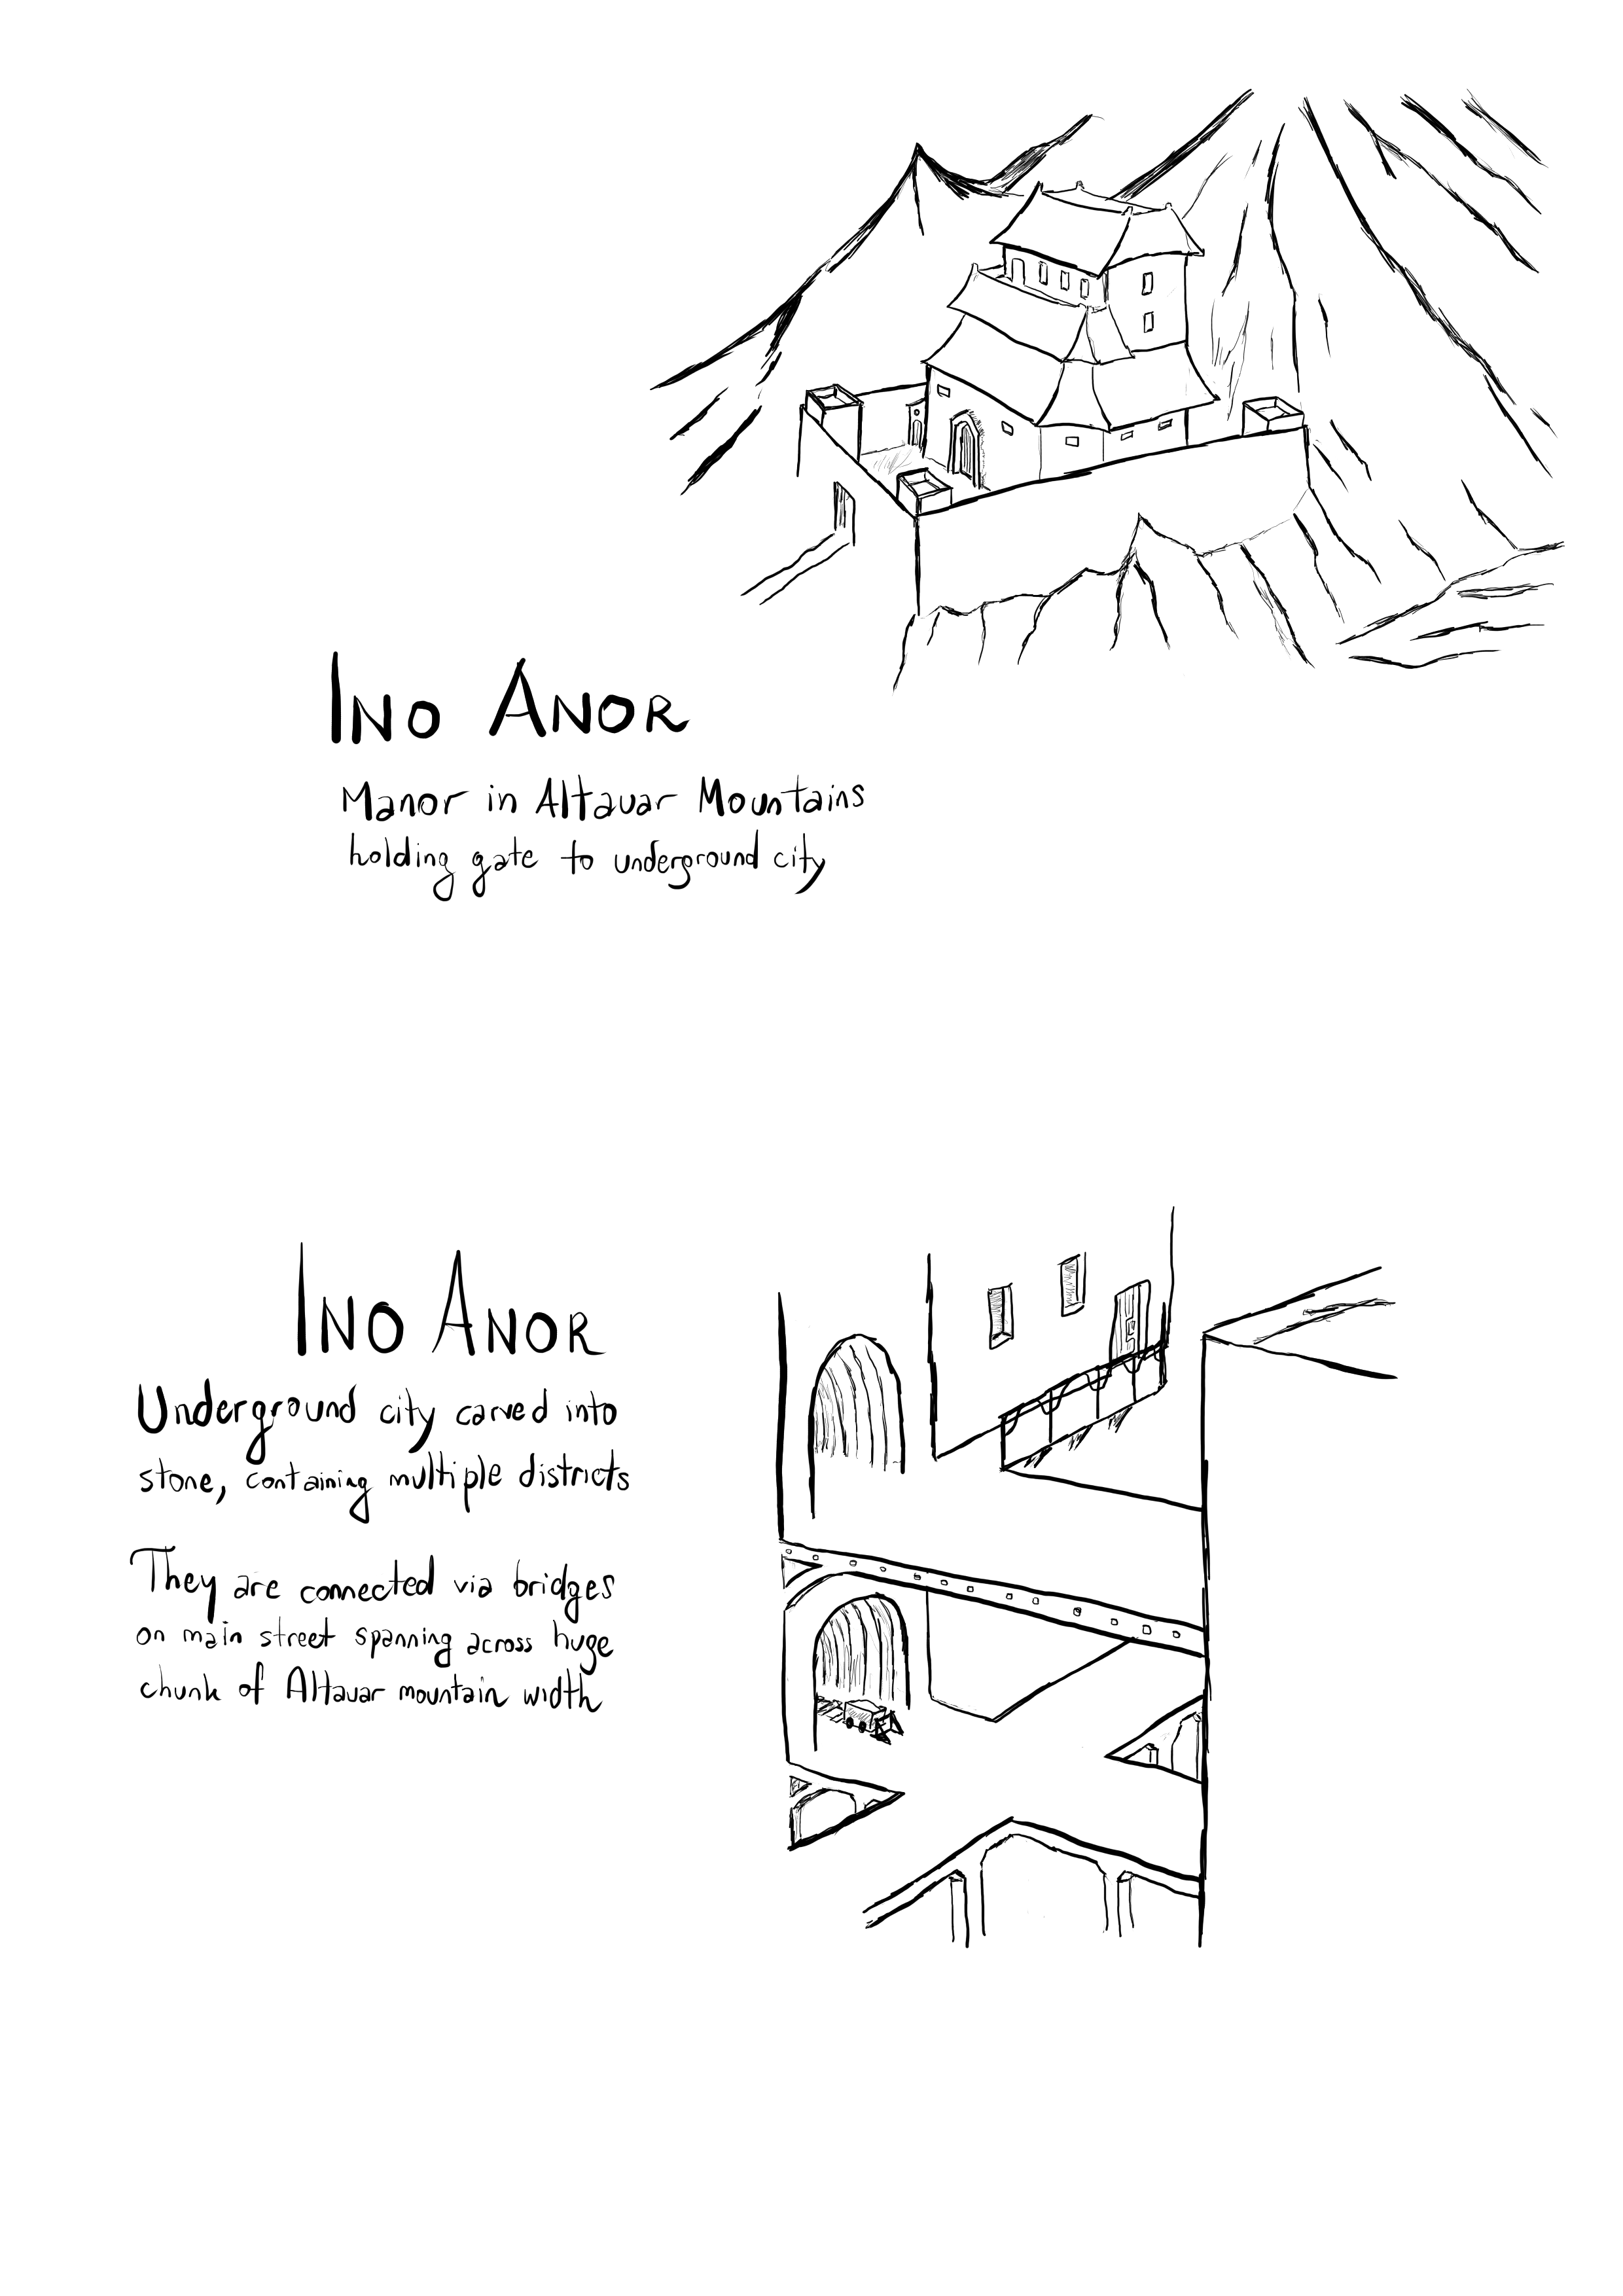 INO ANOR
Manor in Altavar Mountains
holding gate to underground city
INO ANOR
Underground city carved into
stone, containing multiple districts
They are connected via bridges
on main street spanning across huge
chunk of Altavar mountain width